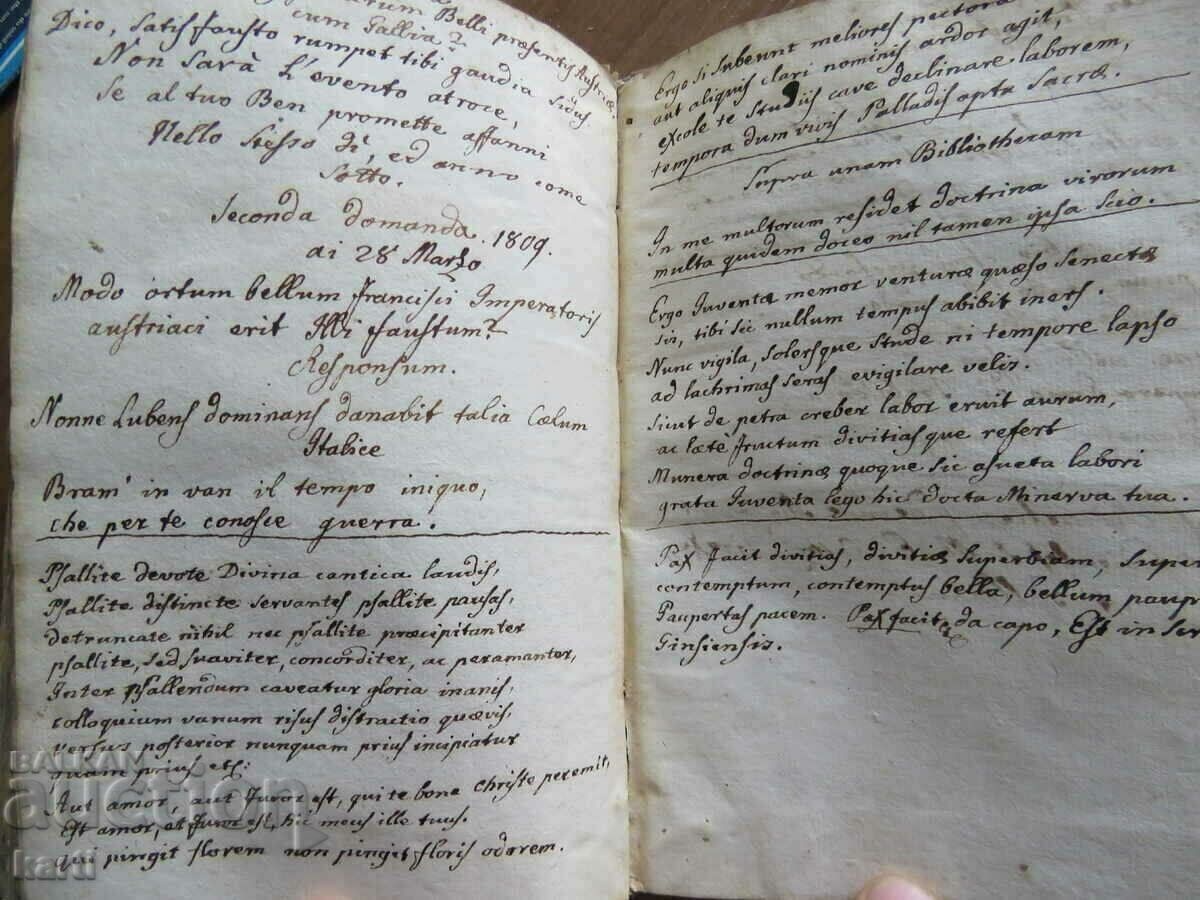 arum Belli præsentis Austriæ
cum Gallia?
Dico, satis fausto rumpet tibi gaudia sidus
Non sarà l'evento atroce,
Se al tuo Ben promette affanni
Nello stesso dì, ed anno come
Sotto.
Seconda domanda. 1809.
ai 28 Marzo
Modo ortum bellum Francisci Imperatoris
austriaci erit Illi faustum?
Responsum.
Nonne Lubens dominans danabit talia Cælum
Italice
Bram' in van il tempo iniquo,
che per te conosce guerra.
Psallite devote Divina cantica laudis,
Psallite distincte servantes psallite pausas,
detruncate nihil nec psallite præcipitanter
psallite, sed suaviter, concorditer, ac peramanter,
Inter psallendum caveatur gloria inanis,
colloquium vanum risus distractio quævis,
versus posterior nunquam prius incipiatur
quam prius etc:
Aut amor, aut furor est, qui te bone Christe peremit,
Est amor, et furor est, hic meus ille tuus.
qui pingit florem non pingit floris odorem.
Ergo si subeunt meliores pectora
aut aliquis clari nominis ardor agit,
excole te studiis cave declinare laborem,
tempora dum vivis Palladis apta Sacræ.
Supra unam Bibliothecam
In me multorum residet doctrina virorum
multa quidem doceo nil tamen ipsa scio.
Ergo Iuventæ memor venturæ quæso senectæ
sis, tibi sic nullum tempus abibit iners.
Nunc vigila, solersque stude ni tempore lapso
ad lachrimas seras evigilare velis.
sicut de petra creber labor eruit aurum,
ac lætè fructum divitiasque refert
Munera doctrinæ quoque sic asueta labori
grata Iuventa lego hic docta Minerva tua.
Pax facit divitias, divitiæ superbiam, super
contemptum, contemptus bella, bellum paup
Paupertas pacem. Pax facit da capo, Est in
Ginsiensis.
BALKAN
auction
karti